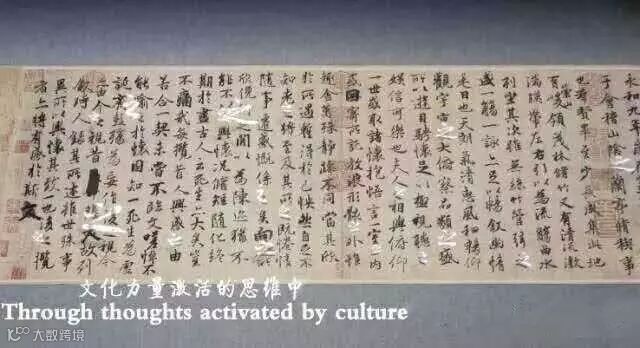 永和九年
于會稽山陰之蘭亭脩稧事
也群賢畢至少長咸集此地
有峻領茂林脩竹又有清流激
湍暎帶左右引以為流觴曲水
列坐其次雖無絲竹管弦之
盛一觴一詠亦足以暢敘幽情
是日也天朗氣清惠風和暢仰
觀宇宙之大俯察品類之盛
所以遊目騁懷足以極視聽之
娛信可樂也夫人之相與俯仰
一世或取諸懷抱悟言一室之內
或因寄所託放浪形骸之外雖
趣舍萬殊靜躁不同當其欣
於所遇暫得於己快然自足不
知老之將至及其所之既惓情
隨事遷感慨係之矣向之所
欣俛仰之間以為陳迹猶不
能不以之興懷況脩短隨化終
期於盡古人云死生亦大矣豈
不痛哉每攬昔人興感之由
若合一契未嘗不臨文嗟悼不
能喻之於懷固知一死生為虛
誕齊彭殤為妄作後之視今
亦由今之視昔悲夫故列
敘時人錄其所述雖世殊事
異所以興懷其致一也後之攬
者亦將有感於斯文
文化力量激活的思维中
Through thoughts activated by culture
大数跨境